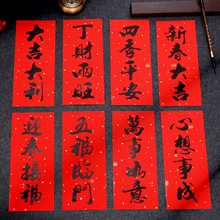 大吉大利
丁財兩旺
四季平安
新春大吉
迎春接福
五福臨門
萬事如意
心想事成